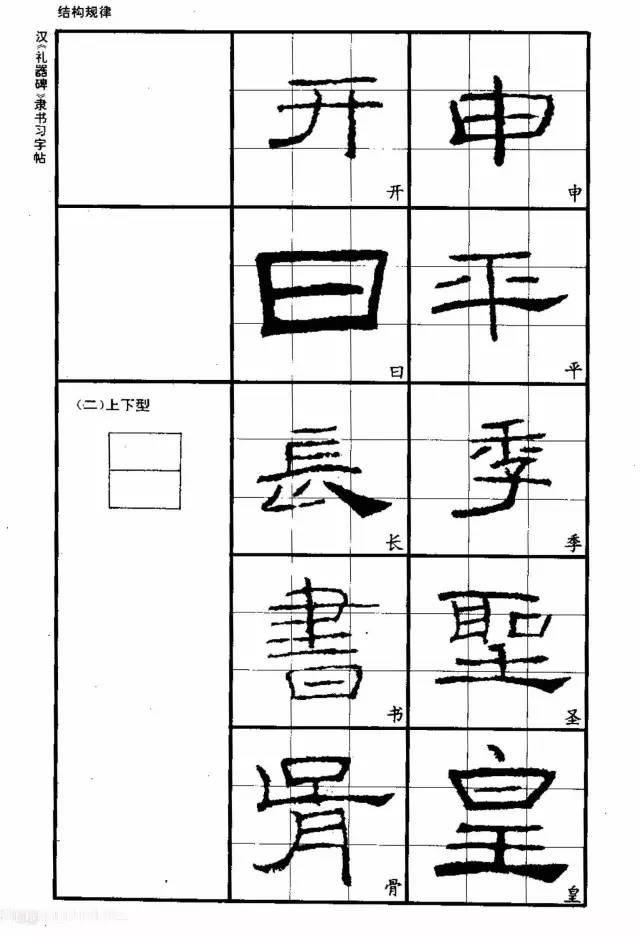 结构规律
汉《礼器碑》隶书习字帖
开 申
开 申
曰 平
曰 平
(二)上下型
長 季
长 季
書 聖
书 圣
骨 皇
骨 皇